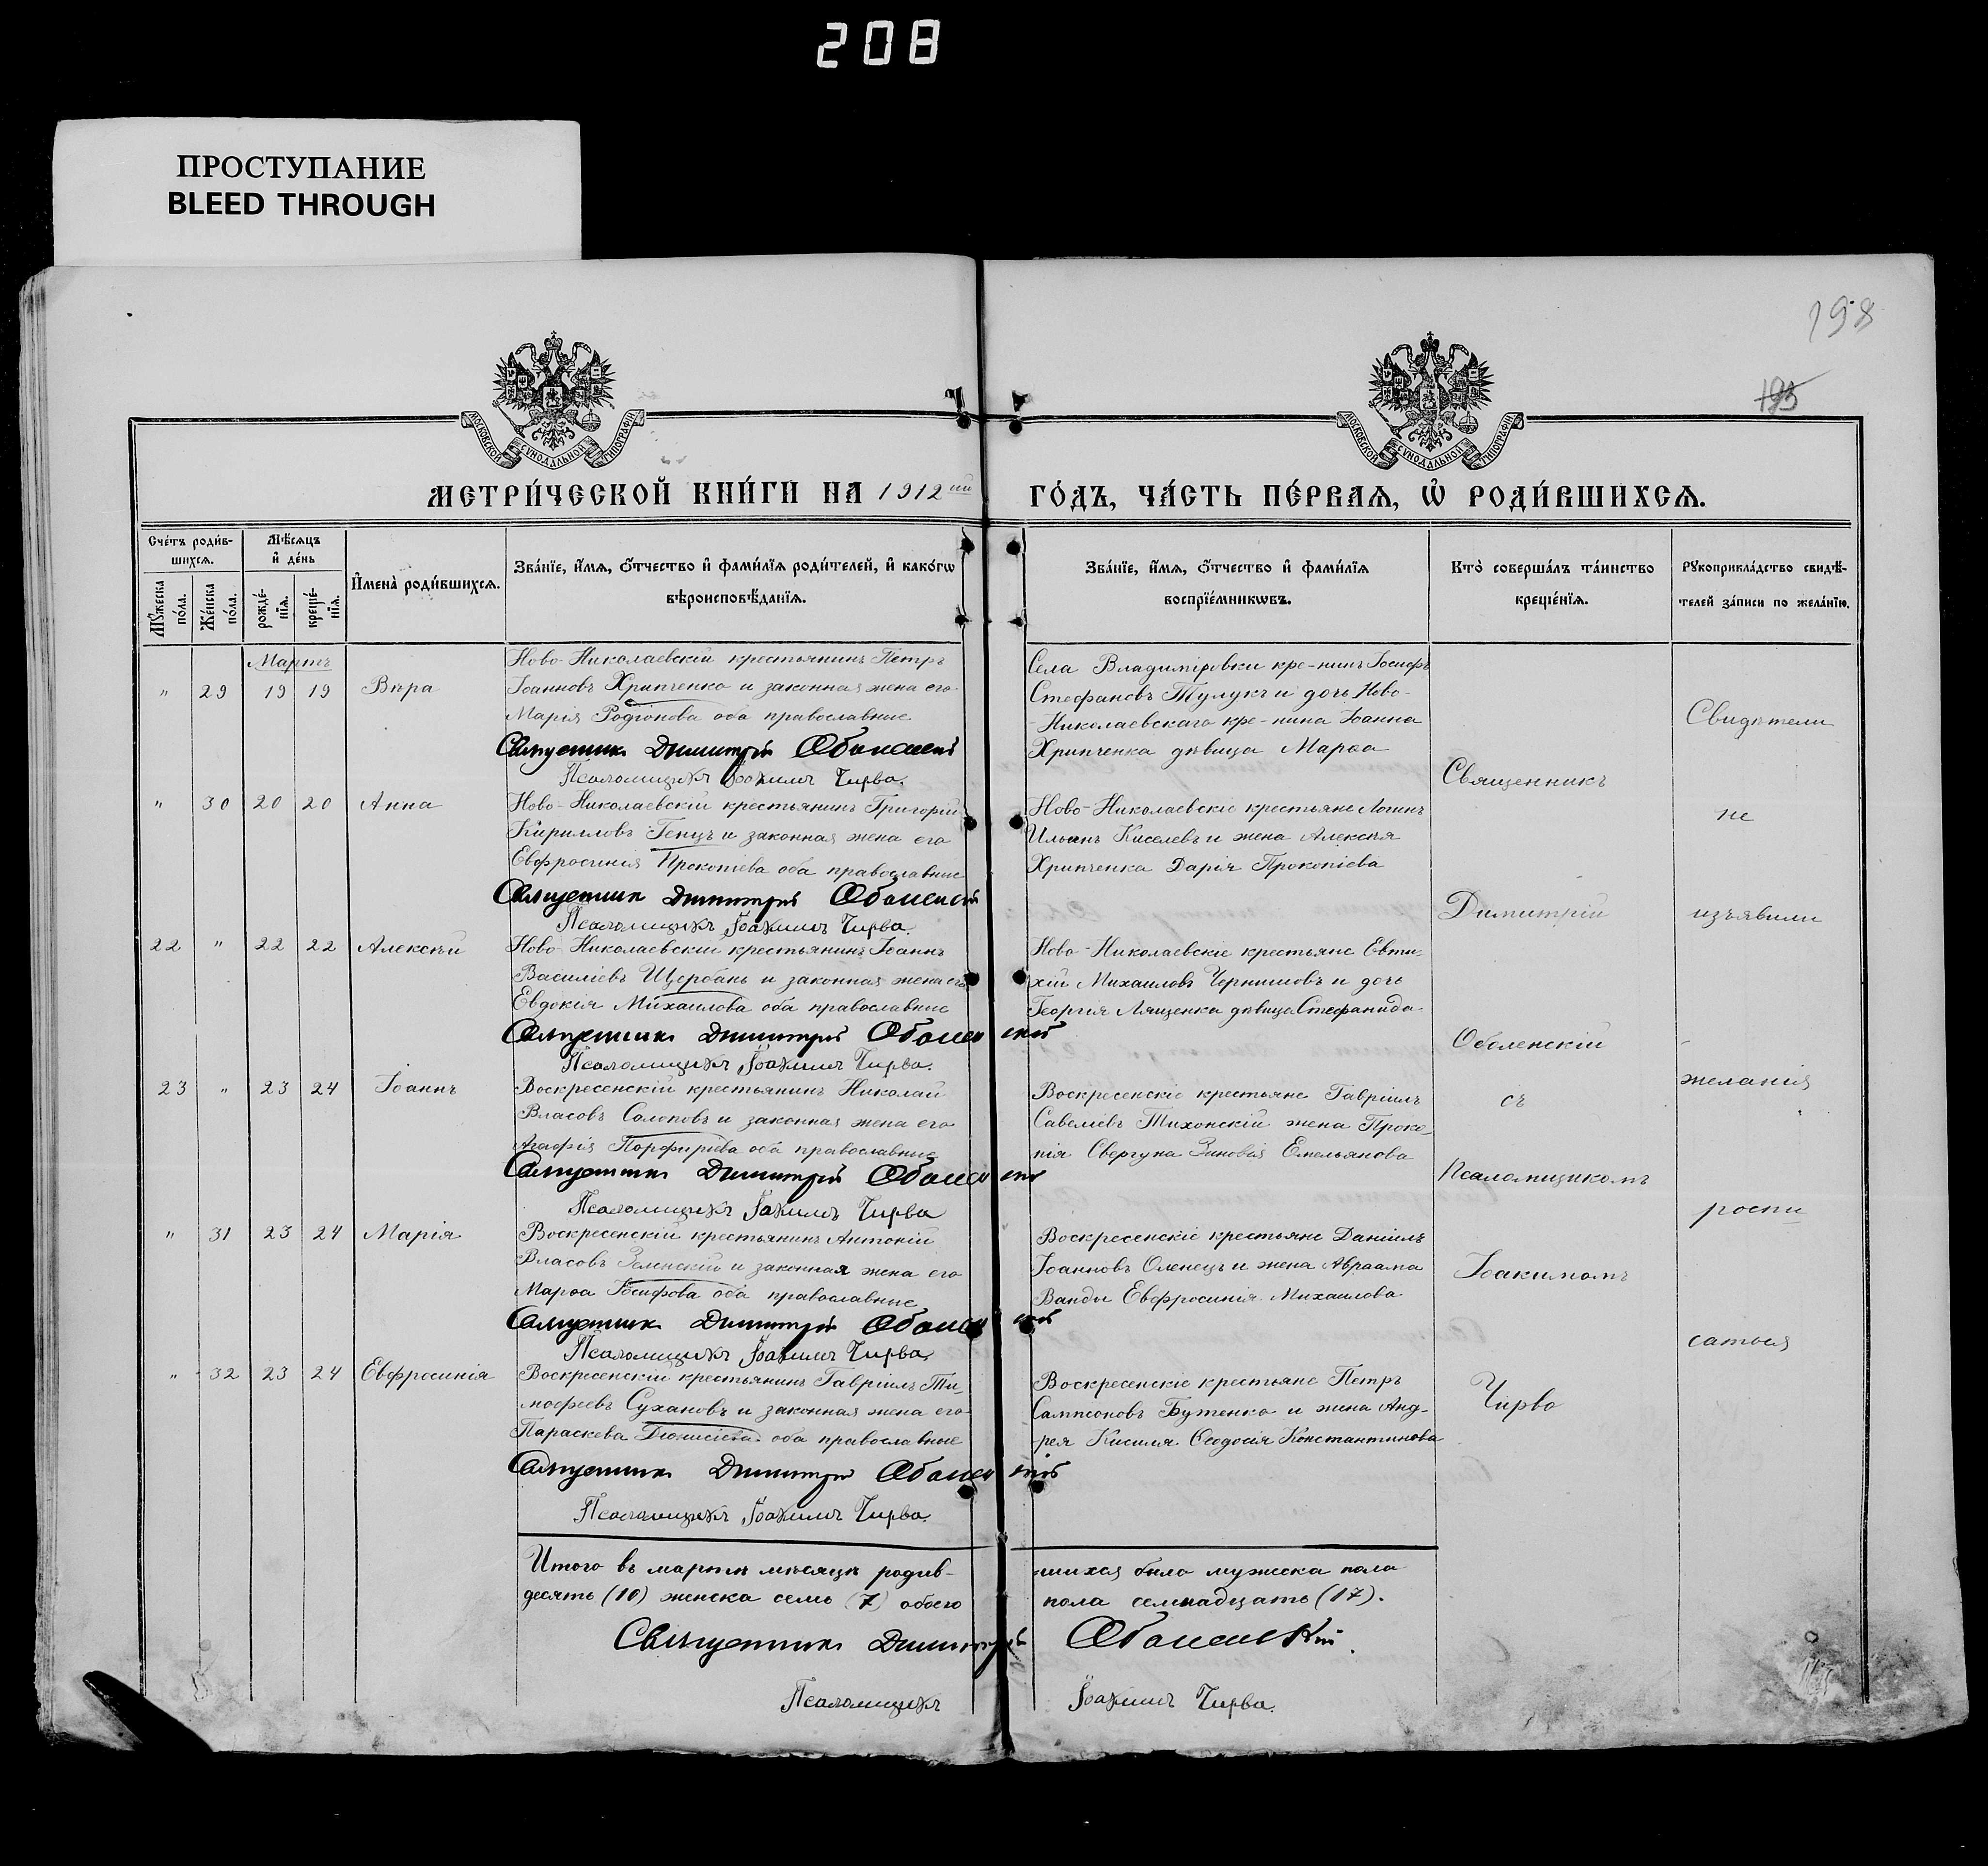 208
ПРОСТУПАНИЕ
BLEED THROUGH
198
195
МОСКОВСКОЙ СѴНОДАЛЬНОЙ ТИПОГРАФІИ
МОСКОВСКОЙ СѴНОДАЛЬНОЙ ТИПОГРАФІИ
МЕТРИ́ЧЕСКОЙ КНИ́ГИ НА 1912ый ГО́ДЪ, ЧА́СТЬ ПЕ́РВАЯ, Ѽ РОДИ́ВШИХСЯ.
Сче́тъ роди́вшихся.
Му́жеска по́ла.
Же́нска по́ла.
Мѣ́сяцъ и де́нь
рожде́нїя.
креще́нїя.
И҆мена̀ роди́вшихся.
Зва́нїе, и҆́мя, ѻ҆́тчество и҆ фами́лїя роди́телей, и҆ како́гѡ вѣроисповѣ́данїя.
Зва́нїе, и҆́мя, ѻ҆́тчество и҆ фами́лїя воспрїе́мникѡвъ.
Кто̀ соверша́лъ та́инство креще́нїя.
Рꙋкоприкла́дство свидѣ́телей за́писи по жела́нїю.
Мартъ
" 29 19 19 Вѣра
Ново-Николаевскій крестьянинъ Петръ
Іоанновъ Хрипченко и законная жена его
Марія Родіонова оба православные.
Священникъ Димитрій Оболенскій
Псаломщикъ Іоакимъ Чирва.
Села Владиміровки кре-нинъ Іосифъ
Стефановъ Тулукъ и дочь Ново-
-Николаевскаго кре-нина Іоанна
Хрипченка дѣвица Марѳа
" 30 20 20 Анна
Ново-Николаевскій крестьянинъ Григорій
Кирилловъ Генцъ и законная жена его
Евфросинія Прокопіева оба православные
Священникъ Димитрій Оболенскій
Псаломщикъ Іоакимъ Чирва.
Ново-Николаевскіе крестьяне Логинъ
Ильинъ Киселевъ и жена Алексѣя
Хрипченка Дарія Прокопіева
22 " 22 22 Алексѣй
Ново-Николаевскій крестьянинъ Іоаннъ
Василіевъ Щербань и законная жена его
Евдокія Михаилова оба православные
Священникъ Димитрій Оболенскій
Псаломщикъ Іоакимъ Чирва.
Ново-Николаевскіе крестьяне Евти-
хій Михаиловъ Чернышовъ и дочь
Георгія Лященка дѣвица Стефанида.
23 " 23 24 Іоаннъ
Воскресенскій крестьянинъ Николай
Власовъ Солоповъ и законная жена его
Агафія Порфиріева оба православные
Священникъ Димитрій Оболенскій
Псаломщикъ Іоакимъ Чирва
Воскресенскіе крестьяне Гавріилъ
Савеліевъ Тихонскій жена Проко-
пія Свергуна Зиновія Емельянова
" 31 23 24 Марія
Воскресенскій крестьянинъ Антоній
Власовъ Зеленскій и законная жена его
Марѳа Іосифова оба православные
Священникъ Димитрій Оболенскій
Псаломщикъ Іоакимъ Чирва.
Воскресенскіе крестьяне Даніилъ
Іоанновъ Оленецъ и жена Авраама
Ванды Евфросинія Михаилова
" 32 23 24 Евфросинія
Воскресенскій крестьянинъ Гавріилъ Ти-
моѳеевъ Сухановъ и законная жена его
Параскева Діонисіева оба православные
Священникъ Димитрій Оболенскій
Псаломщикъ Іоакимъ Чирва.
Воскресенскіе крестьяне Петръ
Сампсоновъ Бутенко и жена Анд-
рея Кисиля Ѳеодосія Константинова
Священникъ
Димитрій
Оболенскій
съ
Псаломщикомъ
Іоакимомъ
Чирво
Свидѣтели
не
изъявили
желанія
роспи
саться
Итого въ мартѣ мѣсяцѣ родив-
шихся было мужеска пола
десять (10) женска семь (7) обоего
пола семнадцать (17).
Священникъ Димитрій Оболенскій.
Псаломщикъ Іоакимъ Чирва.